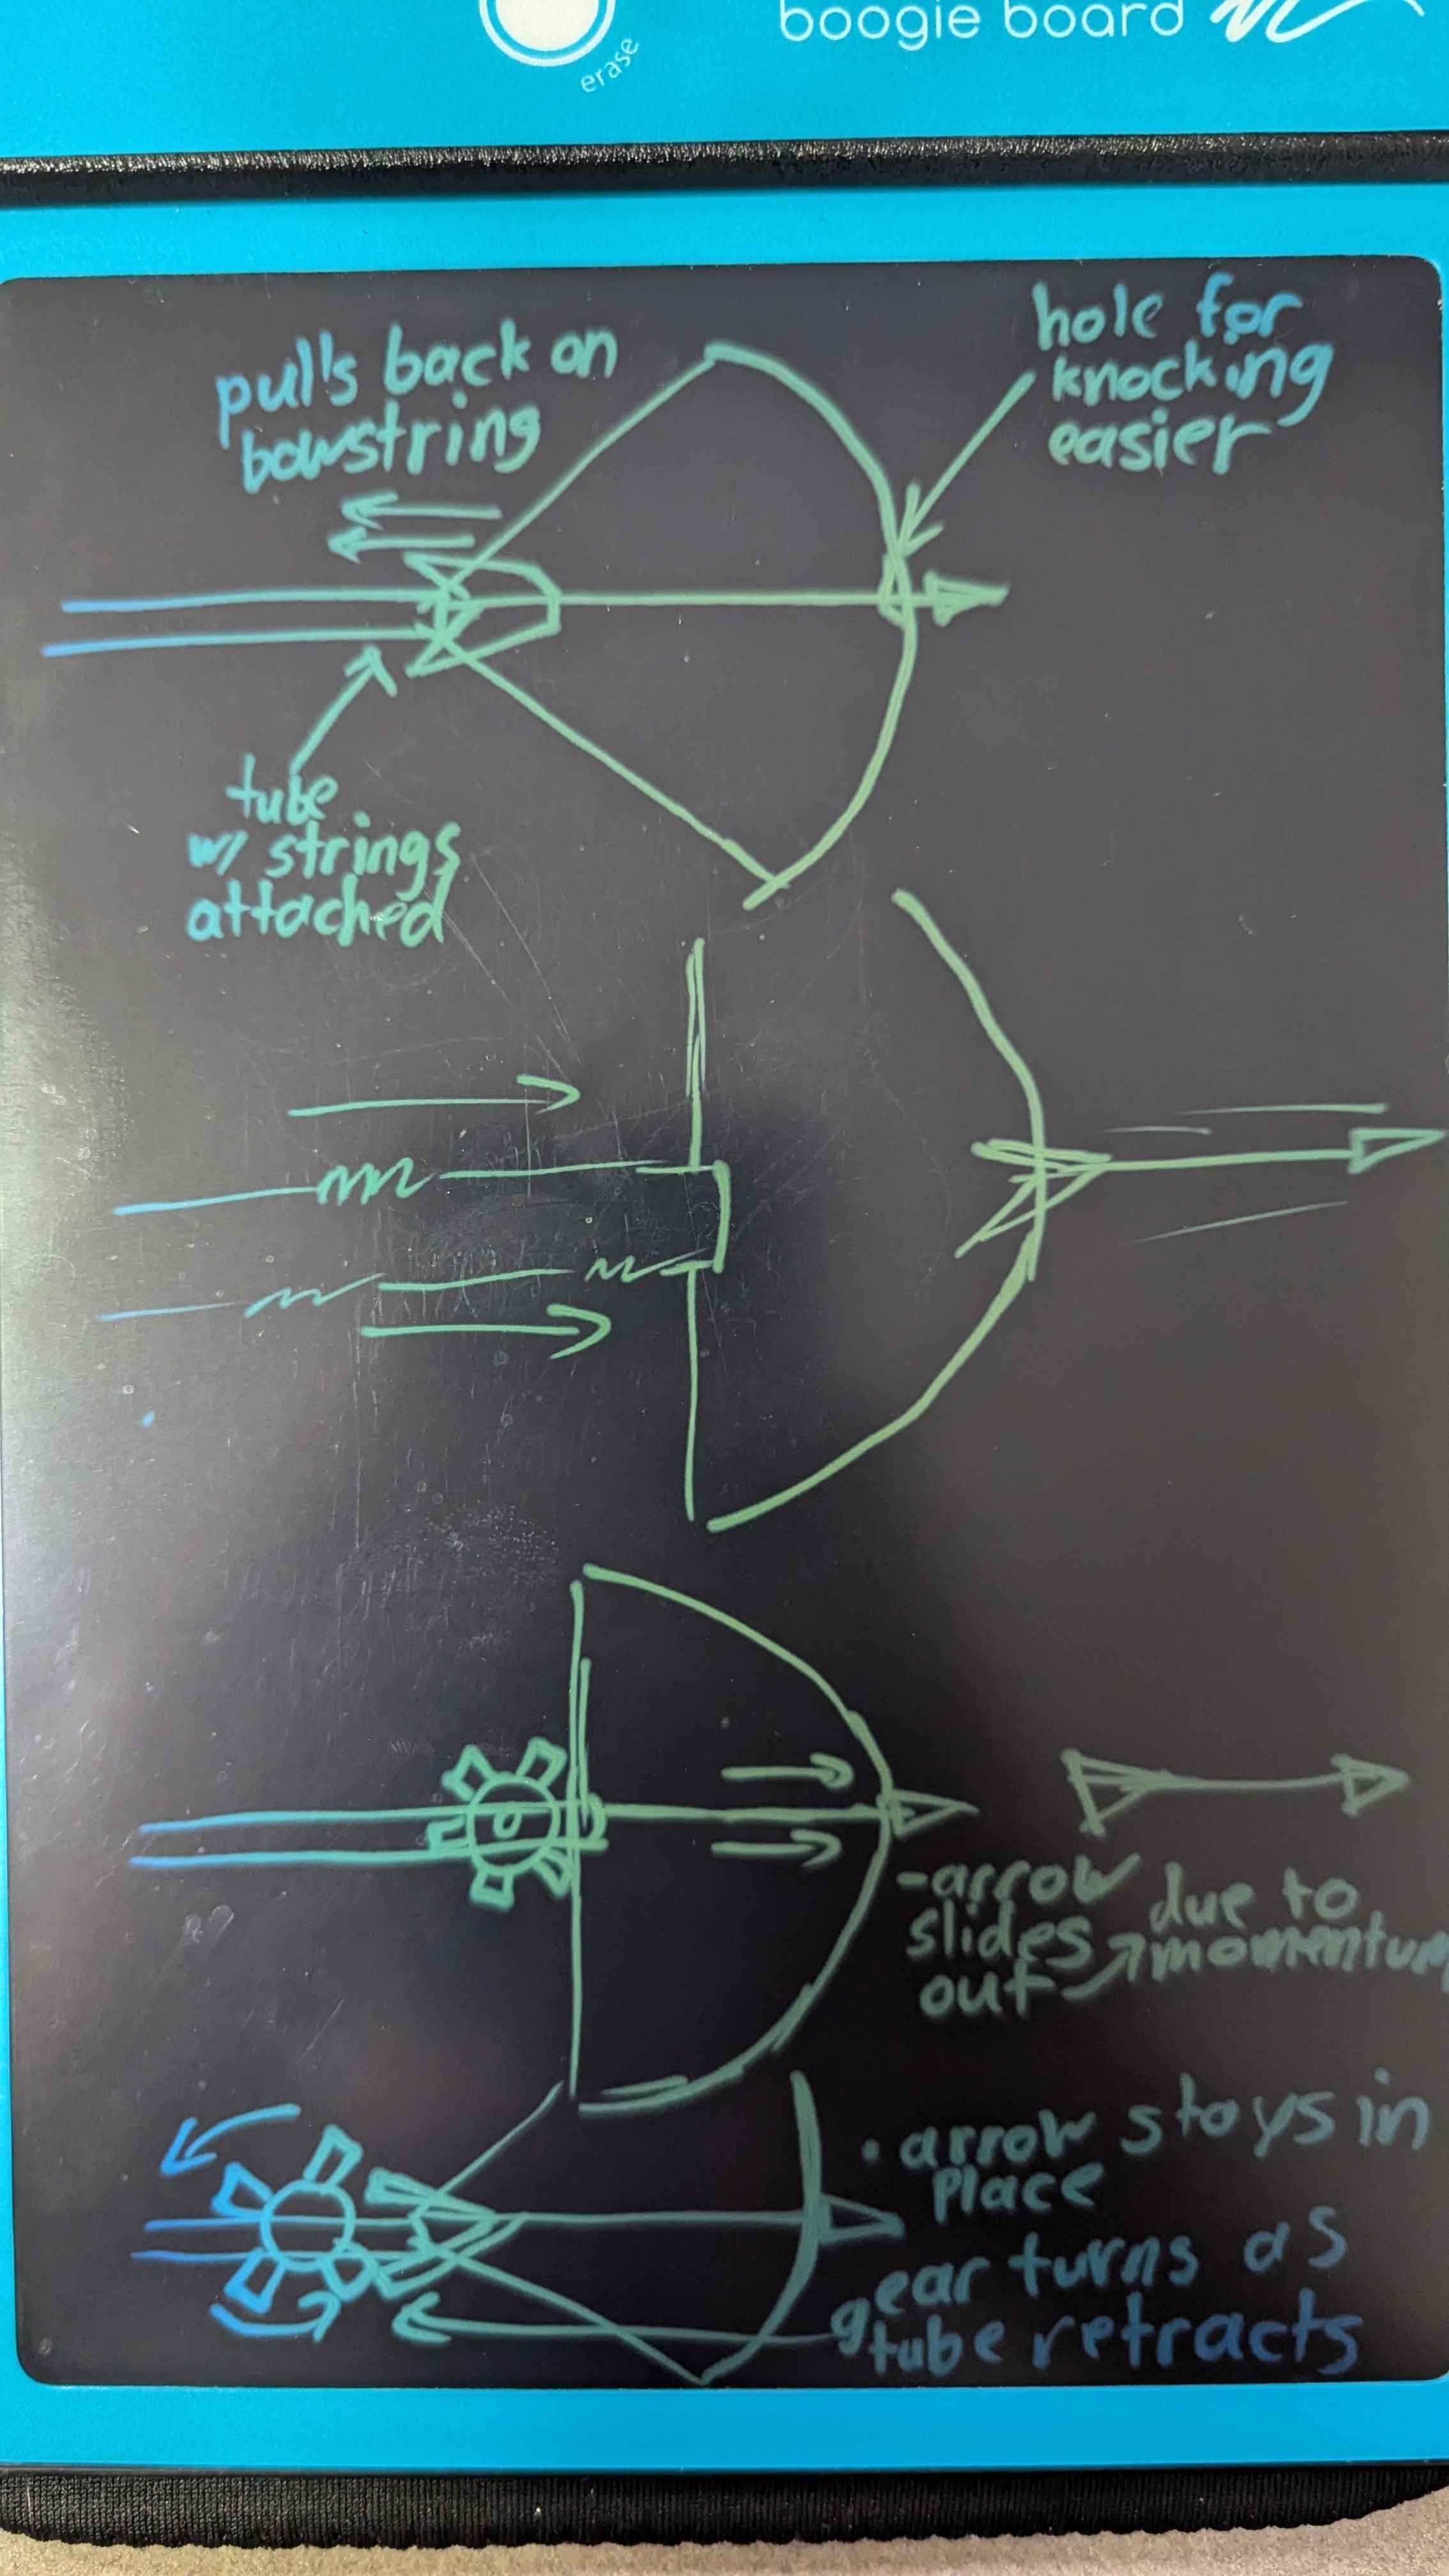 boogie board
erase
pull's back on
bowstring
hole for
knocking
easier
tube
w/ strings
attached
-arrow
slides
out
due to
momentum
• arrow stays in
place
gear turns as
tube retracts